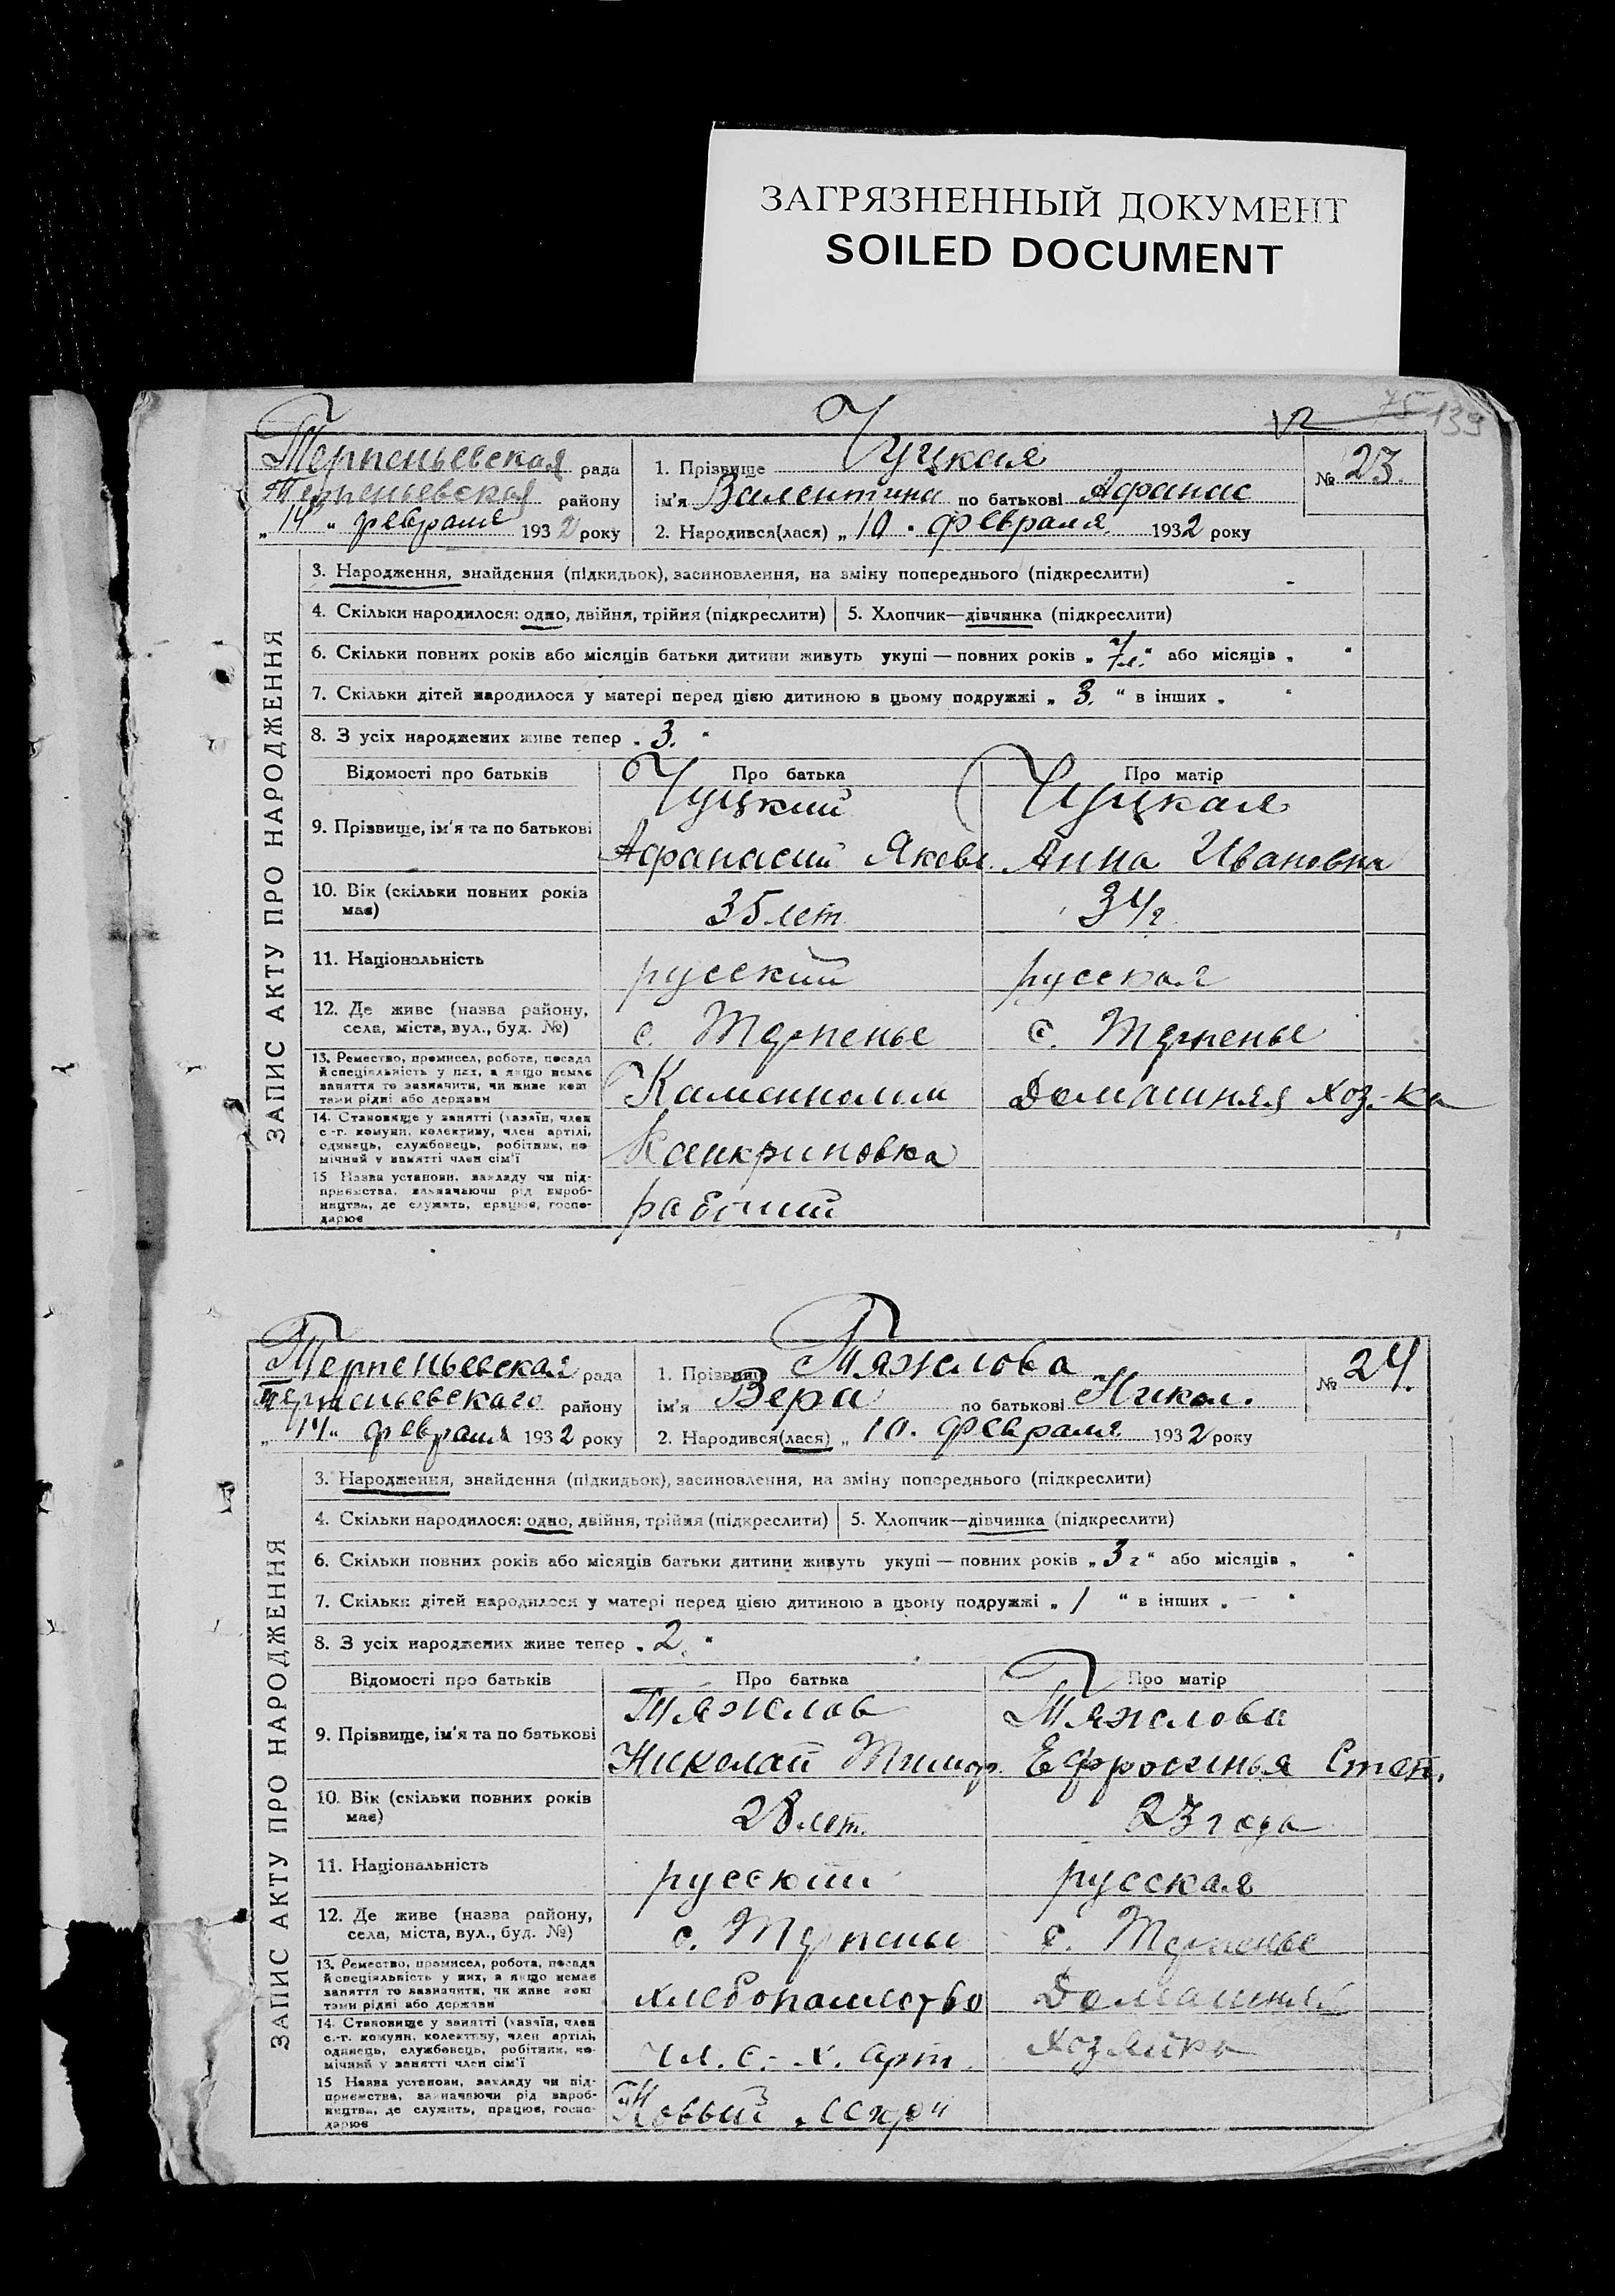 ЗАГРЯЗНЕННЫЙ ДОКУМЕНТ
SOILED DOCUMENT
75 139
ЗАПИС АКТУ ПРО НАРОДЖЕННЯ
Терпеньевская рада
Терпеньевская району
„14“ февраля 1932 року
1. Прізвище Чуцкая
ім'я Валентина по батькові Афанас
2. Народився(лася) „10. февраля 1932 року
№ 23.
3. Народження, знайдення (підкидьок), засиновлення, на зміну попереднього (підкреслити)
4. Скільки народилося: одно, двійня, трійня (підкреслити) 5. Хлопчик—дівчинка (підкреслити)
6. Скільки повних років або місяців батьки дитини живуть укупі — повних років „ “ або місяців „ “
7. Скільки дітей народилося у матері перед цією дитиною в цьому подружжі „ 3. “ в інших „ “
8. З усіх народжених живе тепер „ 3. “
Відомості про батьків Про батька Про матір
9. Прізвище, ім'я та по батькові
Чуцкий Чуцкая
Афанасий Яковл. Анна Ивановна
10. Вік (скільки повних років має) 35 лет 34 г
11. Національність русский русская
12. Де живе (назва району, села, міста, вул., буд. №) с. Терпенье с. Терпенье
13. Ремество, промисел, робота, посада й спеціяльність у них, а якщо немає заняття то зазначити, чи живе коштами рідні або держави Каменнолом Домашняя хоз-ка
14. Становище у занятті (хазяїн, член с.-г. комуни, колективу, член артілі, одинець, службовець, робітник, помічний у занятті член сім'ї Канкриновка
15 Назва установи, закладу чи підприємства, зазначаючи рід виробництва, де служить, працює, господарює рабочий
ЗАПИС АКТУ ПРО НАРОДЖЕННЯ
Терпеньевская рада
Терпеньевскаго району
„14“ февраля 1932 року
1. Прізвище Тяжелова
ім'я Вера по батькові Никол.
2. Народився(лася) „10. февраля 1932 року
№ 24.
3. Народження, знайдення (підкидьок), засиновлення, на зміну попереднього (підкреслити)
4. Скільки народилося: одно, двійня, трійня (підкреслити) 5. Хлопчик—дівчинка (підкреслити)
6. Скільки повних років або місяців батьки дитини живуть укупі — повних років „3 г“ або місяців „ “
7. Скільки дітей народилося у матері перед цією дитиною в цьому подружжі „ 1 “ в інших „ — “
8. З усіх народжених живе тепер „ 2. “
Відомості про батьків Про батька Про матір
9. Прізвище, ім'я та по батькові
Тяжелов Тяжелова
Николай Тимоф. Ефросинья Степ.
10. Вік (скільки повних років має) 28 лет. 23 года
11. Національність русский русская
12. Де живе (назва району, села, міста, вул., буд. №) с. Терпенье с. Терпенье
13. Ремество, промисел, робота, посада й спеціяльність у них, а якщо немає заняття то зазначити, чи живе коштами рідні або держави хлебопашество Домашняя
14. Становище у занятті (хазяїн, член с.-г. комуни, колективу, член артілі, одинець, службовець, робітник, помічний у занятті член сім'ї чл. с.-х. арт. хозяйка
15 Назва установи, закладу чи підприємства, зазначаючи рід виробництва, де служить, працює, господарює Новый